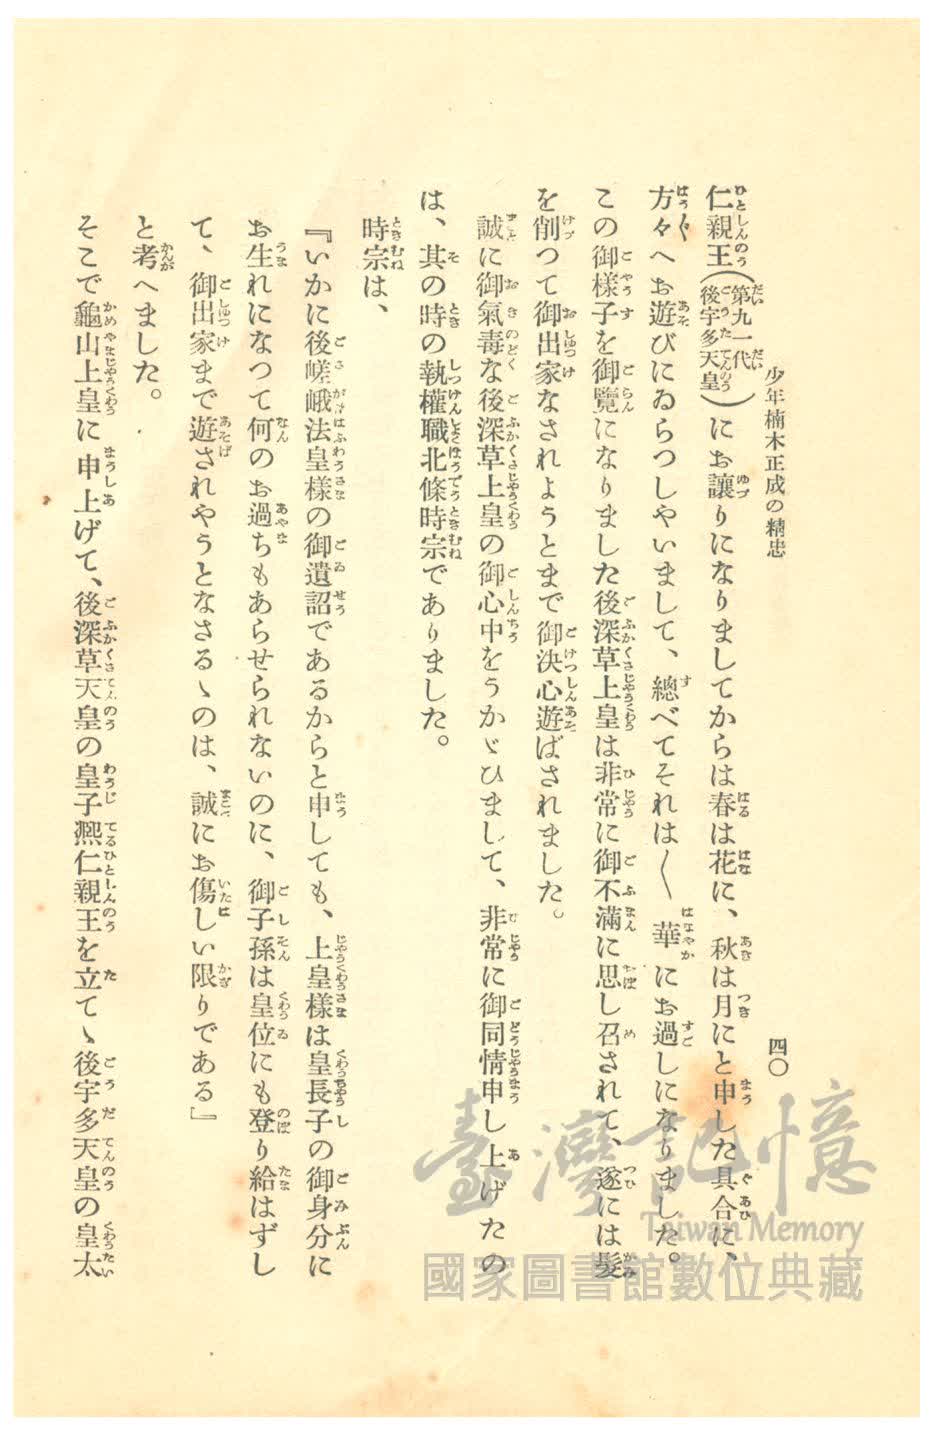 少年楠木正成の精忠
四〇
仁親王(第九一代後宇多天皇)にお讓りになりましてからは春は花に、秋は月にと申した具合に、
方々へお遊びにゐらつしやいまして、總べてそれは〱華にお過しになりました。
この御樣子を御覽になりました後深草上皇は非常に御不滿に思し召されて、遂には髮
を削つて御出家なされようとまで御決心遊ばされました。
誠に御氣毒な後深草上皇の御心中をうかゞひまして、非常に御同情申し上げたの
は、其の時の執權職北條時宗でありました。
時宗は、
『いかに後嵯峨法皇樣の御遺詔であるからと申しても、上皇樣は皇長子の御身分に
お生れになつて何のお過ちもあらせられないのに、御子孫は皇位にも登り給はずし
て、御出家まで遊されやうとなさるゝのは、誠にお傷しい限りである』
と考へました。
そこで龜山上皇に申上げて、後深草天皇の皇子熈仁親王を立てゝ後宇多天皇の皇太
臺灣記憶
Taiwan Memory
國家圖書館數位典藏